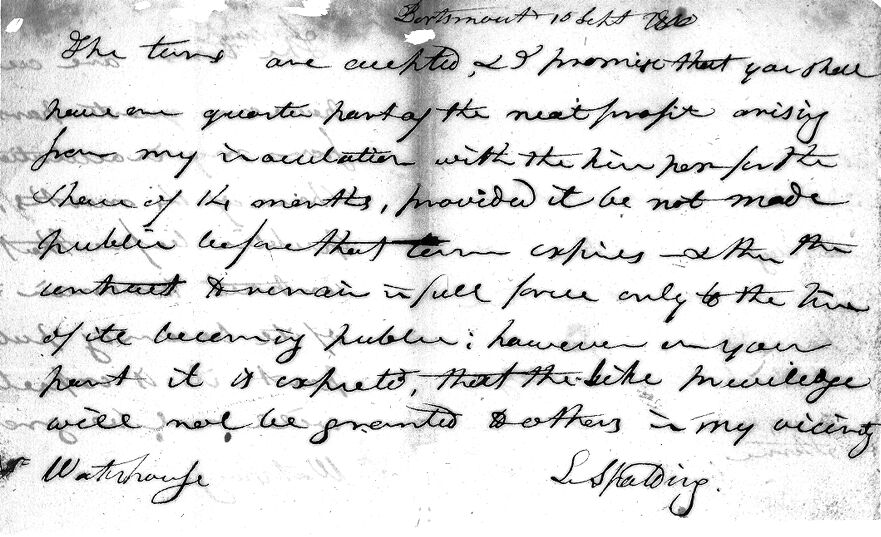 Portsmouth 10 Sept 1800
The terms are accepted, & I promise that you shall
have one quarter part of the neat profit arising
from my inoculation with the kine pox for the
space of 14 months, provided it be not made
public before that term expires & then the
contract to remain in full force only to the time
of its becoming public; however on your
part it is expected, that the like priviledge
will not be granted to others in my vicinity
Waterhouse L. Spalding.